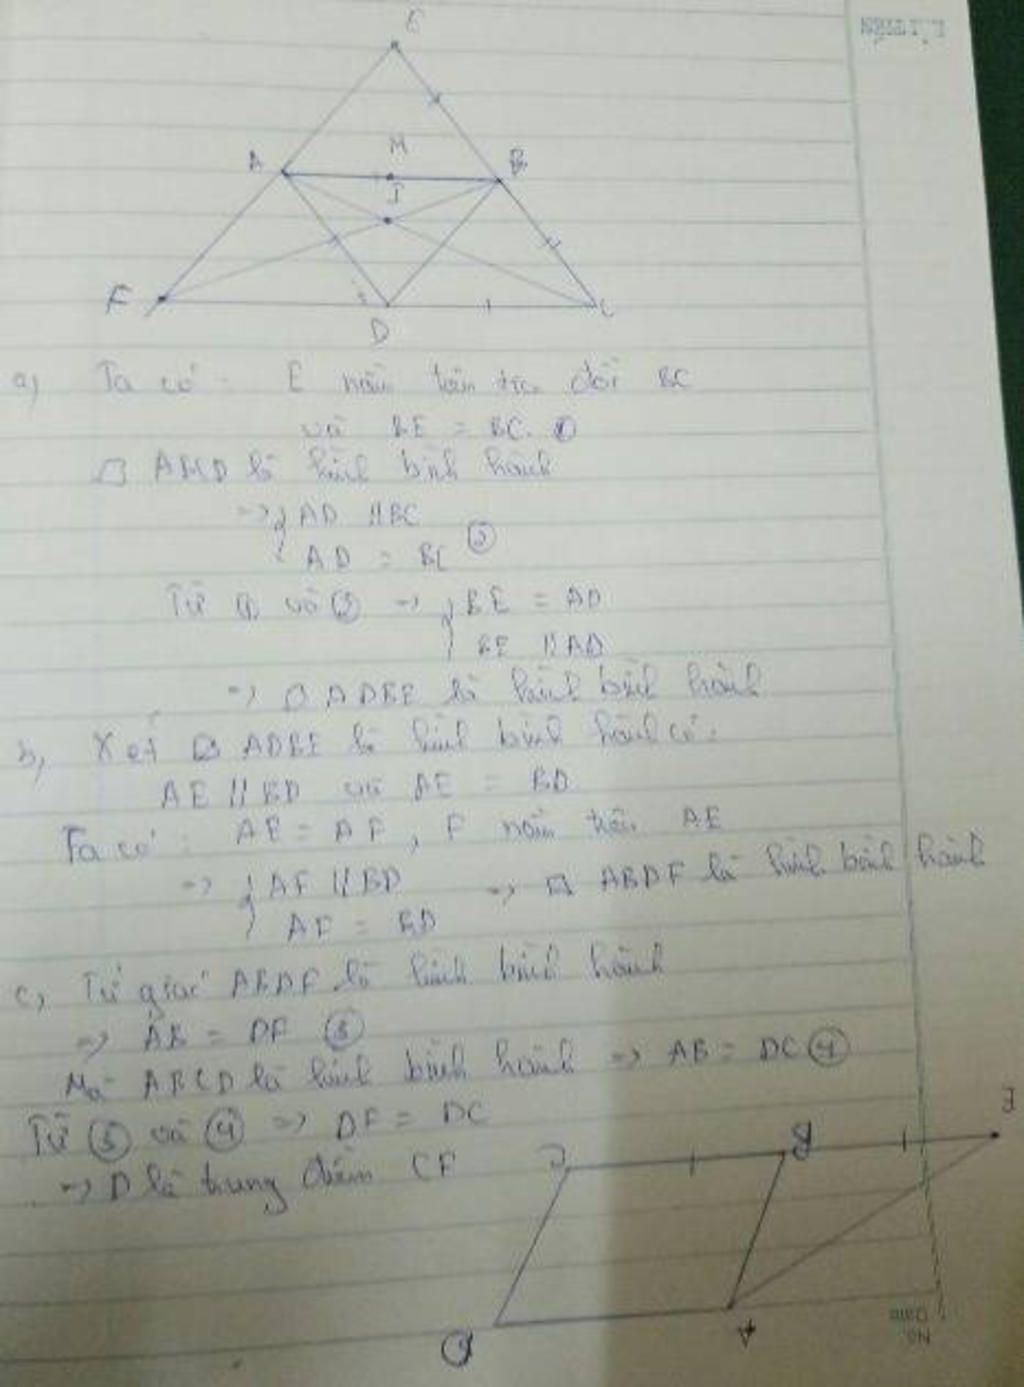 E
A
M
B
I
F
D
C
a) Ta có: E nằm trên tia đối BC
và BE = BC. ①
□ ABCD là hình bình hành
=> { AD // BC
AD = BC ②
Từ ① và ② => { BE = AD
BE // AD
=> □ ADBE là hình bình hành
b) Xét □ ADBE là hình bình hành có:
AE // BD và AE = BD
Ta có: AE = AF, F nằm trên AE
=> { AF // BD => □ ABDF là hình bình hành
AF = BD
c) Tứ giác ABDF là hình bình hành
=> AB = DF ③
Mà ABCD là hình bình hành => AB = DC ④
Từ ③ và ④ => DF = DC
=> D là trung điểm CF
C
B
E
D
A
No.
Date